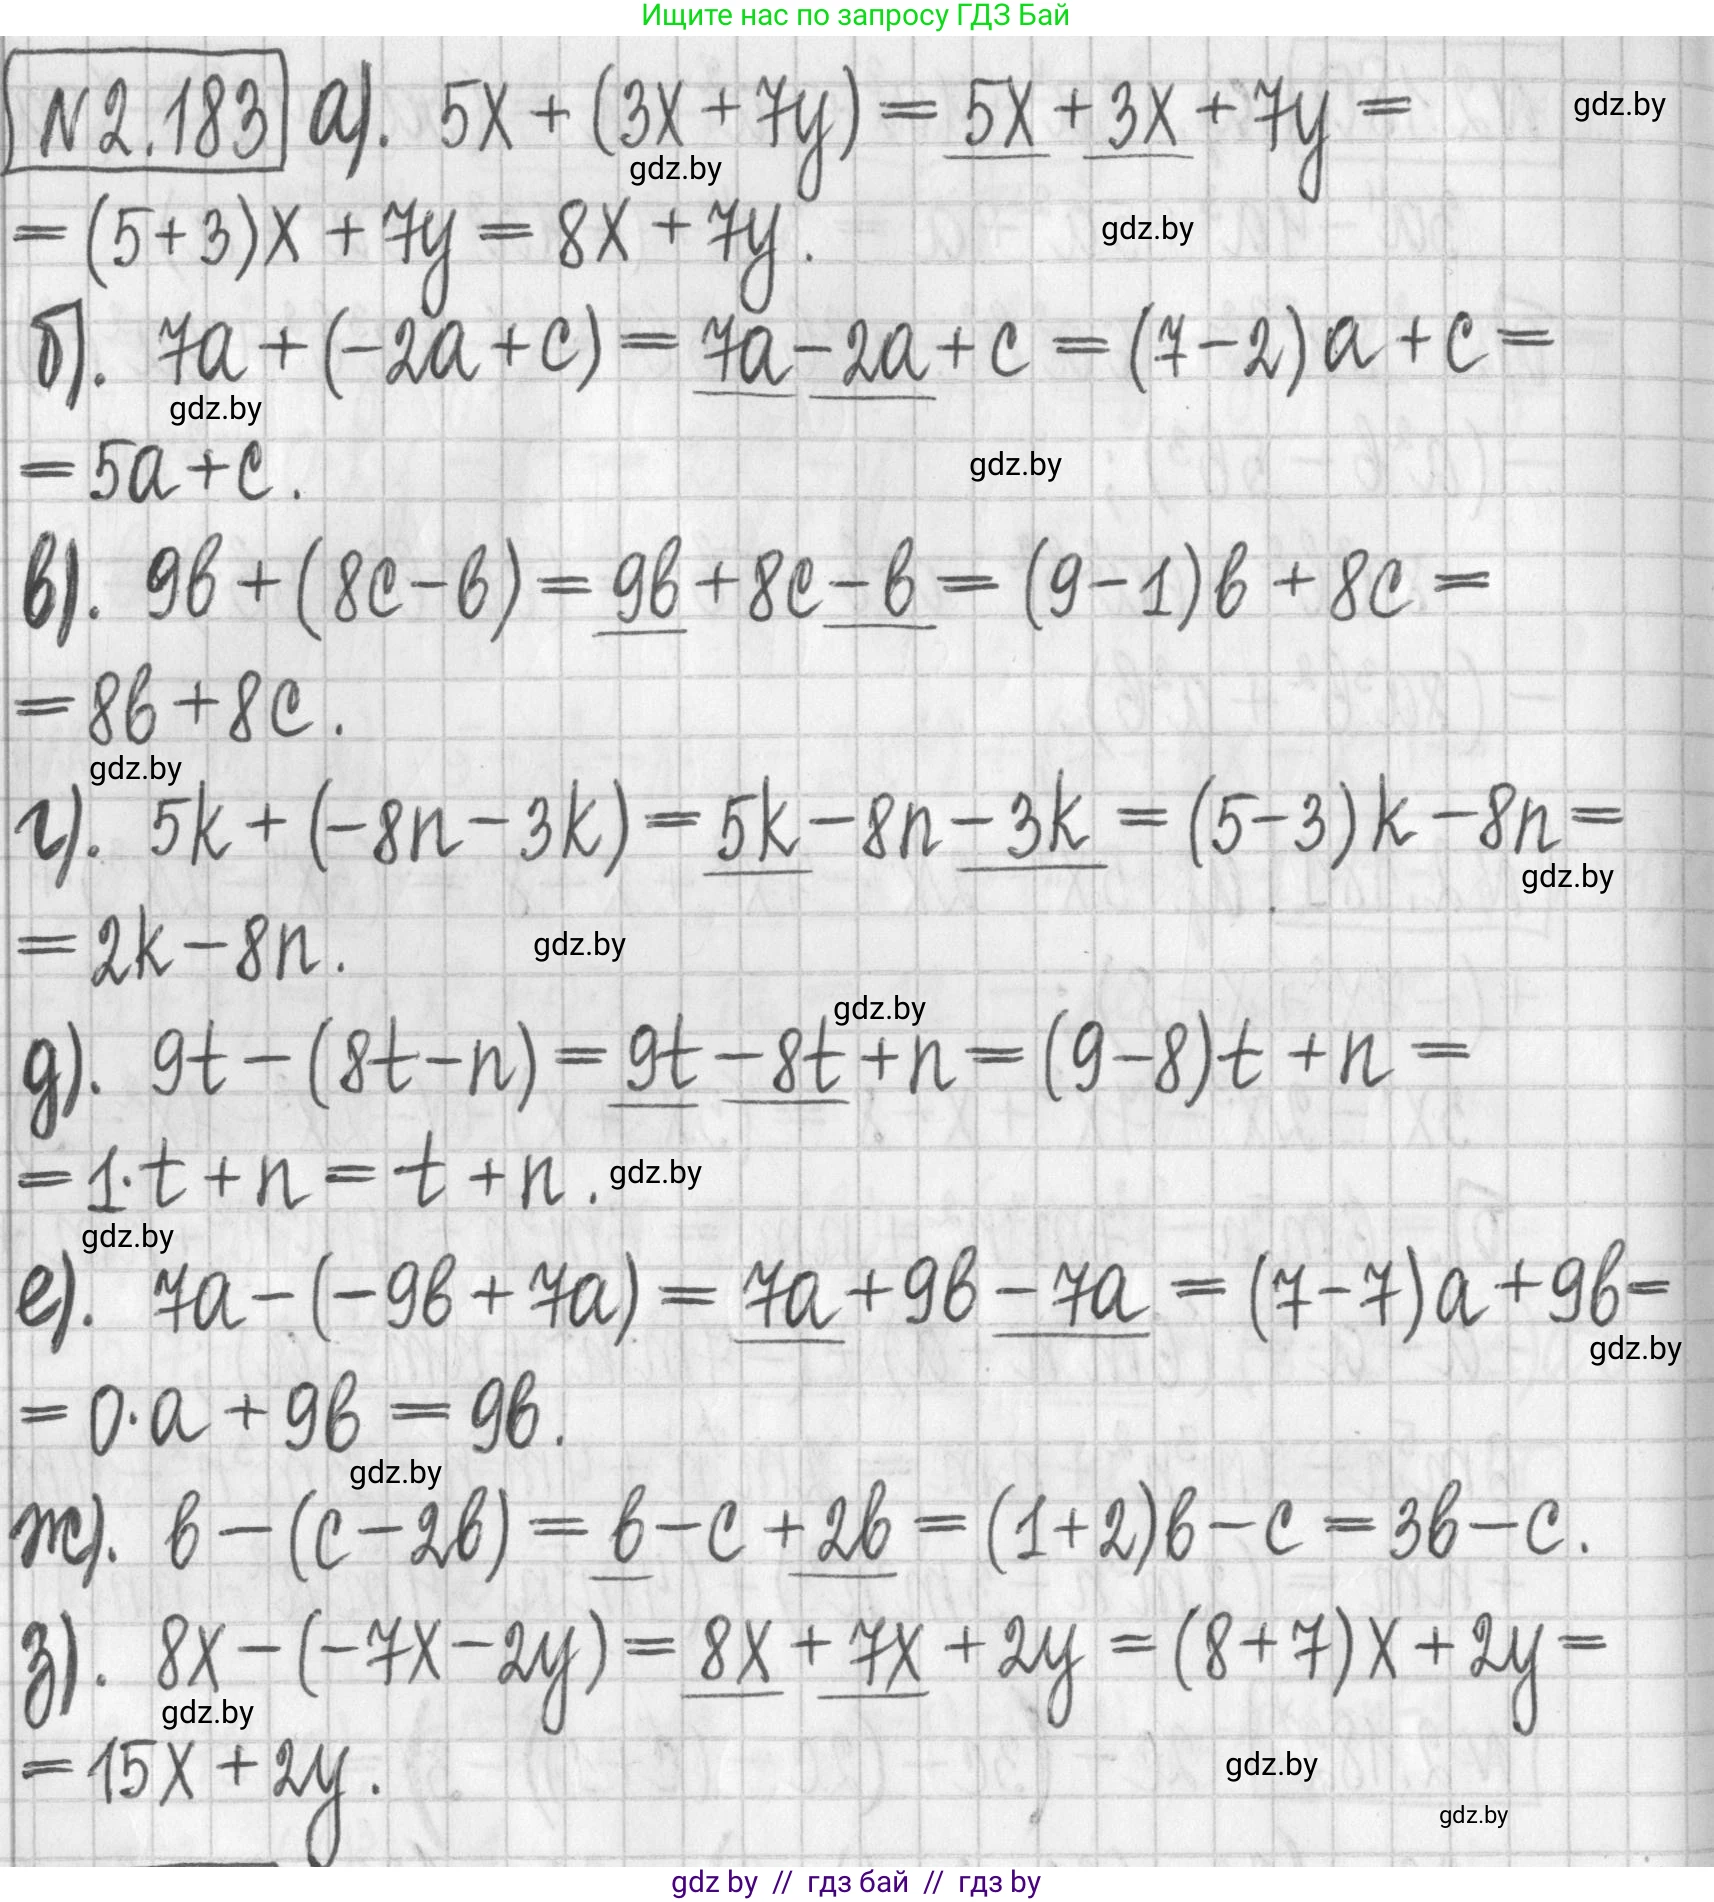 Ищите нас по запросу ГДЗ Бай
№2.183 а). 5x + (3x + 7y) = 5x + 3x + 7y =
gdz.by
gdz.by
= (5+3)x + 7y = 8x + 7y.
gdz.by
б). 7a + (-2a + c) = 7a - 2a + c = (7-2)a + c =
gdz.by
= 5a + c.
gdz.by
в). 9в + (8c - в) = 9в + 8c - в = (9-1)в + 8c =
= 8в + 8c.
gdz.by
г). 5k + (-8n - 3k) = 5k - 8n - 3k = (5-3)k - 8n =
gdz.by
= 2k - 8n.
gdz.by
gdz.by
д). 9t - (8t - n) = 9t - 8t + n = (9-8)t + n =
= 1·t + n = t + n.
gdz.by
gdz.by
е). 7a - (-9в + 7a) = 7a + 9в - 7a = (7-7)a + 9в =
gdz.by
= 0·a + 9в = 9в.
gdz.by
ж). в - (c - 2в) = в - c + 2в = (1+2)в - c = 3в - c.
з). 8x - (-7x - 2y) = 8x + 7x + 2y = (8+7)x + 2y =
gdz.by
= 15x + 2y.
gdz.by
gdz.by
gdz by // гдз бай // гдз by